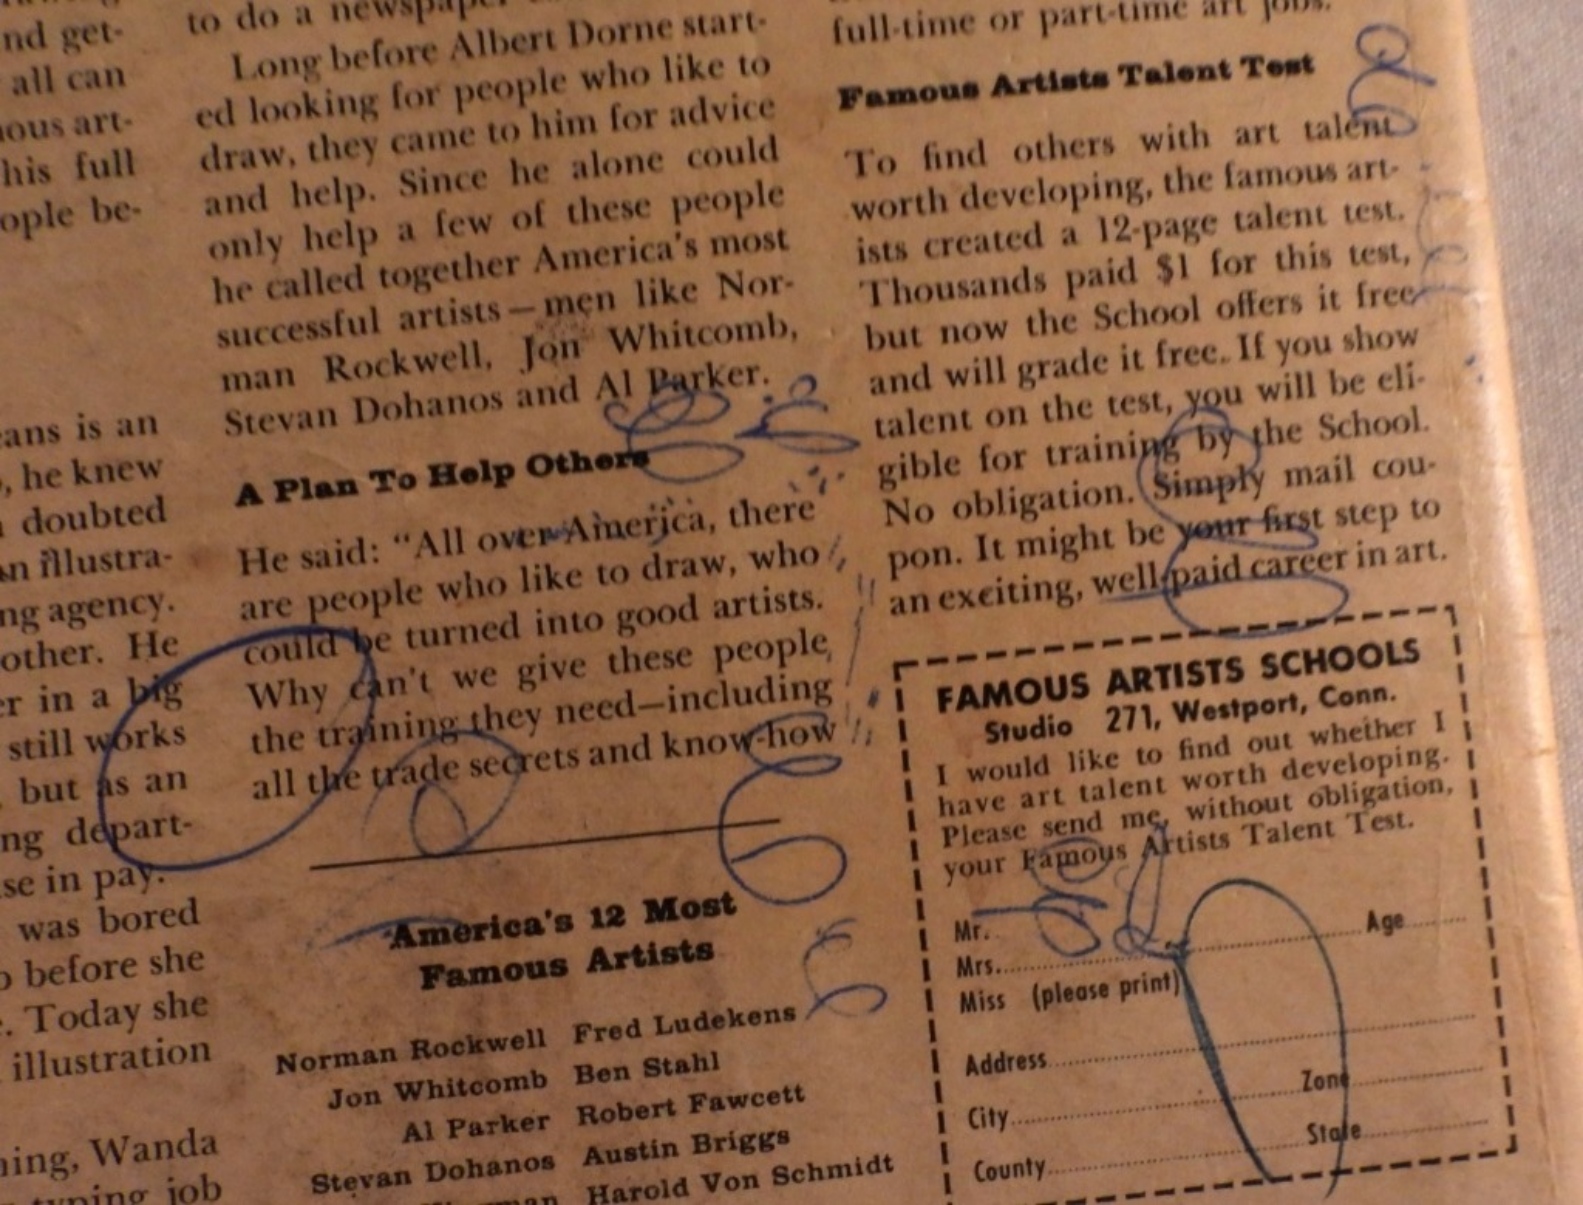 nd get-
all can
ous art-
his full
ople be-
eans is an
, he knew
doubted
an illustra-
ng agency.
other. He
er in a big
still works
, but as an
ng depart-
se in pay.
was bored
o before she
e. Today she
illustration
ning, Wanda
typing job
to do a newspaper
Long before Albert Dorne start-
ed looking for people who like to
draw, they came to him for advice
and help. Since he alone could
only help a few of these people
he called together America's most
successful artists—men like Nor-
man Rockwell, Jon Whitcomb,
Stevan Dohanos and Al Parker.
A Plan To Help Others
He said: "All over America, there
are people who like to draw, who
could be turned into good artists.
Why can't we give these people
the training they need—including
all the trade secrets and know-how
America's 12 Most
Famous Artists
Norman Rockwell Fred Ludekens
Jon Whitcomb Ben Stahl
Al Parker Robert Fawcett
Stevan Dohanos Austin Briggs
Harold Von Schmidt
full-time or part-time art jobs.
Famous Artists Talent Test
To find others with art talent
worth developing, the famous art-
ists created a 12-page talent test.
Thousands paid $1 for this test,
but now the School offers it free
and will grade it free. If you show
talent on the test, you will be eli-
gible for training by the School.
No obligation. Simply mail cou-
pon. It might be your first step to
an exciting, well-paid career in art.
FAMOUS ARTISTS SCHOOLS
Studio 271, Westport, Conn.
I would like to find out whether I
have art talent worth developing.
Please send me, without obligation,
your Famous Artists Talent Test.
Mr. Age
Mrs.
Miss (please print)
Address
City Zone
County State